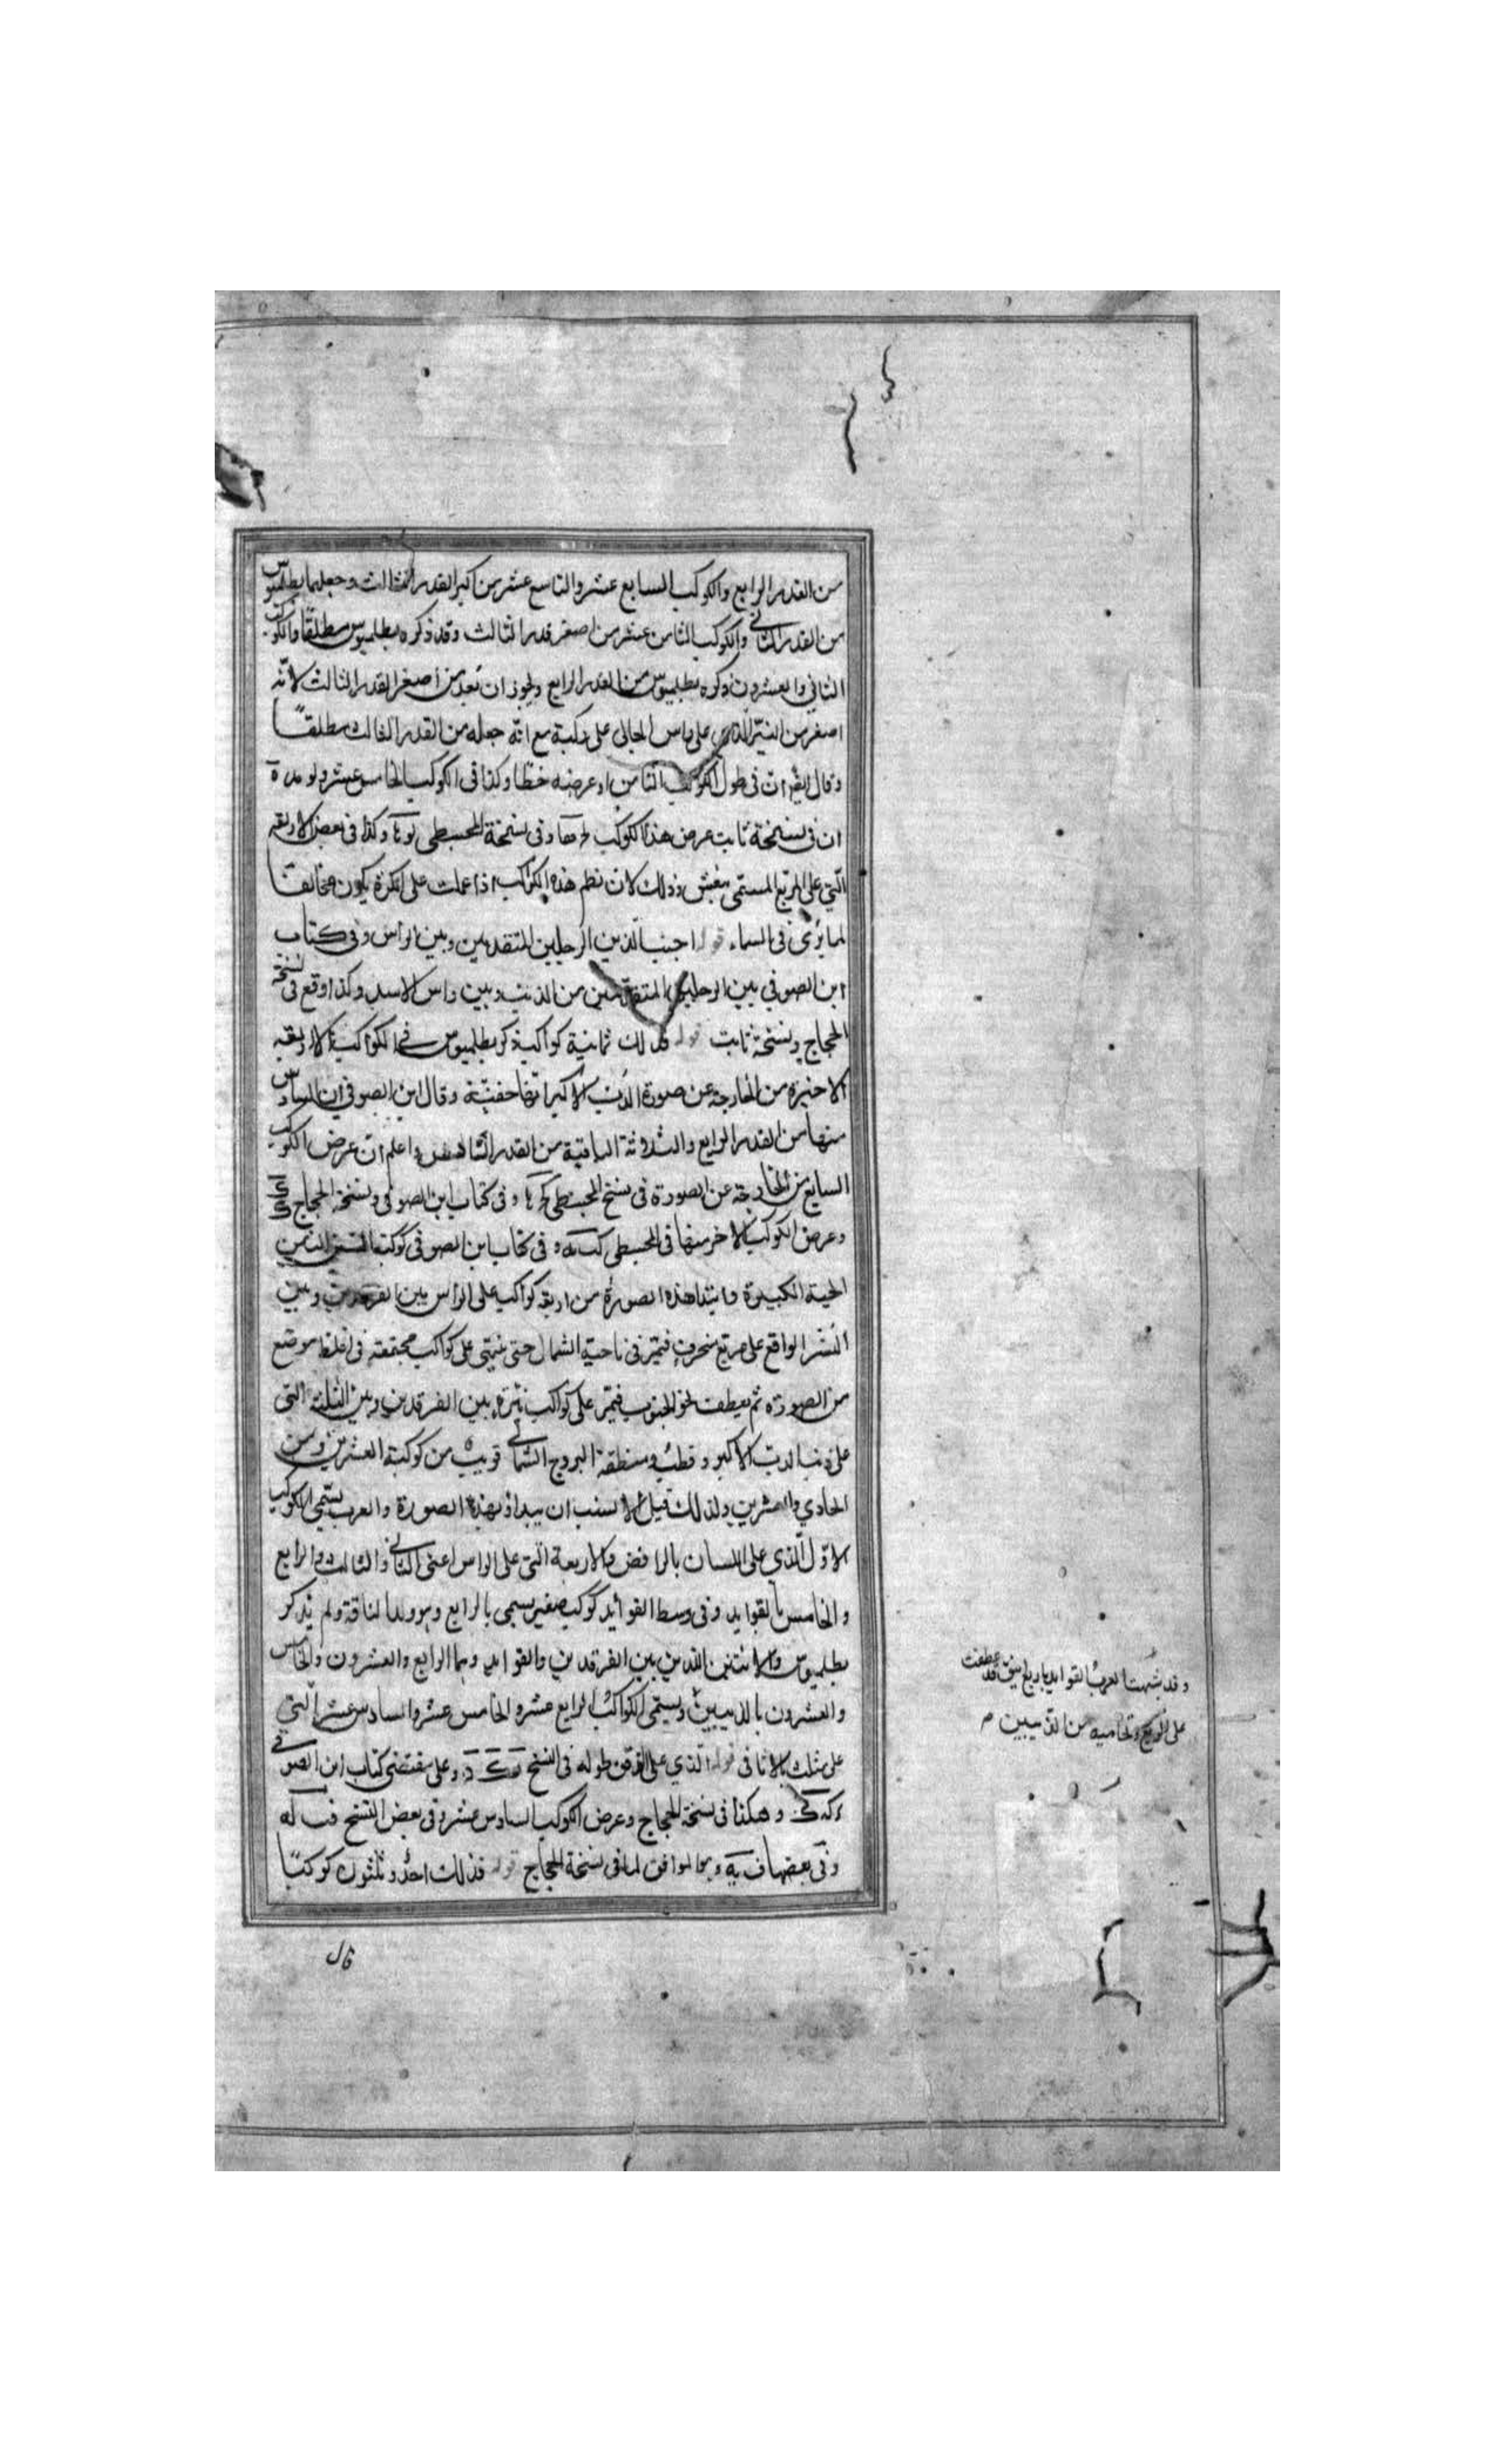 من القدر الرابع والكوكب السابع عشر والتاسع عشر من اكبر القدر الثالث وجعلهما بطلميوس
من القدر الثاني والكوكب الثامن عشر من اصغر قدر الثالث وقد ذكره بطلميوس مطلقًا والكوكب
الثاني والعشرون ذكره بطلميوس من القدر الرابع ويجوز ان يعد من اصغر القدر الثالث لانّه
اصغر من النيّر الذي على راس الجاثي على ركبة مع انّه جعله من القدر الثالث مطلقًا
وقال ايضًا ان في طول الكوكب الثامن او عرضه خطا وكذا في الكوكب الخامس عشر
ان في نسخة ثابت عرض هذا الكوكب وفي نسخة المجسطي وكذا في بعض الاربعة
الّتي على المربع المسمى بنعش وذلك لان نظم هذه الكواكب اذا عملت على الكرة يكون مخالفًا
لما يرى في السماء قوله اجنب الذين الرجلين المتقدمين وبين الراس وفي كتاب
ابن الصوفي بين الرجلين المتقدّمين من الذنب وبين راس الاسد وكذا وقع في نسخة
الحجاج ونسخة ثابت قوله فذلك ثمانية كواكب ذكر بطلميوس في الكواكب الاربعة
الاخيرة من الخارجة عن صورة الدب الاكبر انّها خفيّة وقال ابن الصوفي ان السادس
منها من القدر الرابع والثلاثة الباقية من القدر الخامس واعلم انّ عرض الكوكب
السابع من الخارجة عن الصورة في نسخ المجسطي وفي كتاب ابن الصوفي ونسخة الحجاج
وعرض الكوكب الاخر منها في المجسطي وفي كتاب ابن الصوفي كوكبة التنين
الحية الكبيرة وابتدا هذه الصورة من اربعة كواكب على الراس بين الفرقدين وبين
النسر الواقع على مربع منحرف فتمرّ في ناحية الشمال حتى ينتهي على كواكب مجتمعة في اغلظ موضع
من الصورة ثم يعطف نحو الجنوب فتمرّ على كواكب نيّرة بين الفرقدين وبين الثلثة التي
على ذنب الدب الاكبر وقطب منطقة البروج الشمالي قريبٌ من كوكبه العشرين ومن
الحادي والعشرين ولذلك قيل الانسب ان يبدا بهذه الصورة والعرب يسمّي الكوكب
الاوّل الّذي على اللسان بالرافض والاربعة الّتي على الراس اعني الثاني والثالث والرابع
والخامس بالعوايد وفي وسط العوائد كوكب صغير يسمى بالرابع وهو ولد الناقة ولم يذكره
بطلميوس والاثنين اللذين بين الفرقدين والعوايد وهما الرابع والعشرون والخامس
والعشرون بالذيبين ويسمّى الكواكب الرابع عشر والخامس عشر والسادس عشر الّتي
على مثلث بالاثافي قوله الّذي على الذقن طوله في النسخ وعلى مقتضى كتاب ابن الصوفي
وهكذا في نسخة الحجاج وعرض الكوكب السادس عشر وفي بعض النسخ
وفي بعضها وهو الموافق لما في نسخة الحجاج قوله فذلك احدٌ وثلثون كوكبًا
قال
وقد شبهت العرب العوايد باربع اينق قد عطفت
على الربع وتحاميه من الذيبين م